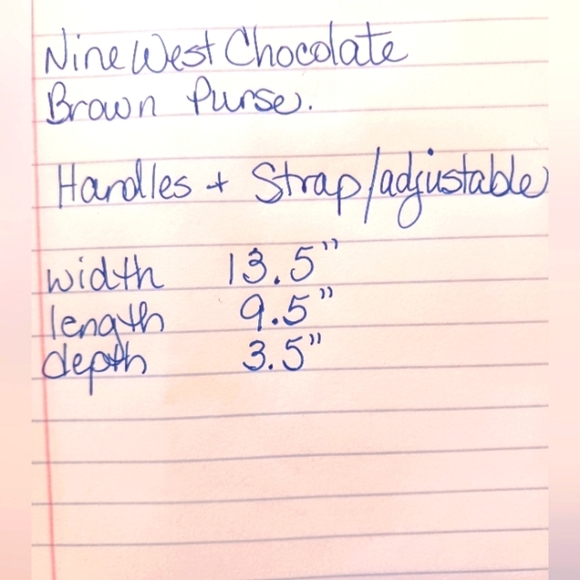 Nine West Chocolate
Brown Purse.
Handles + Strap/adjustable
width 13.5"
length 9.5"
depth 3.5"